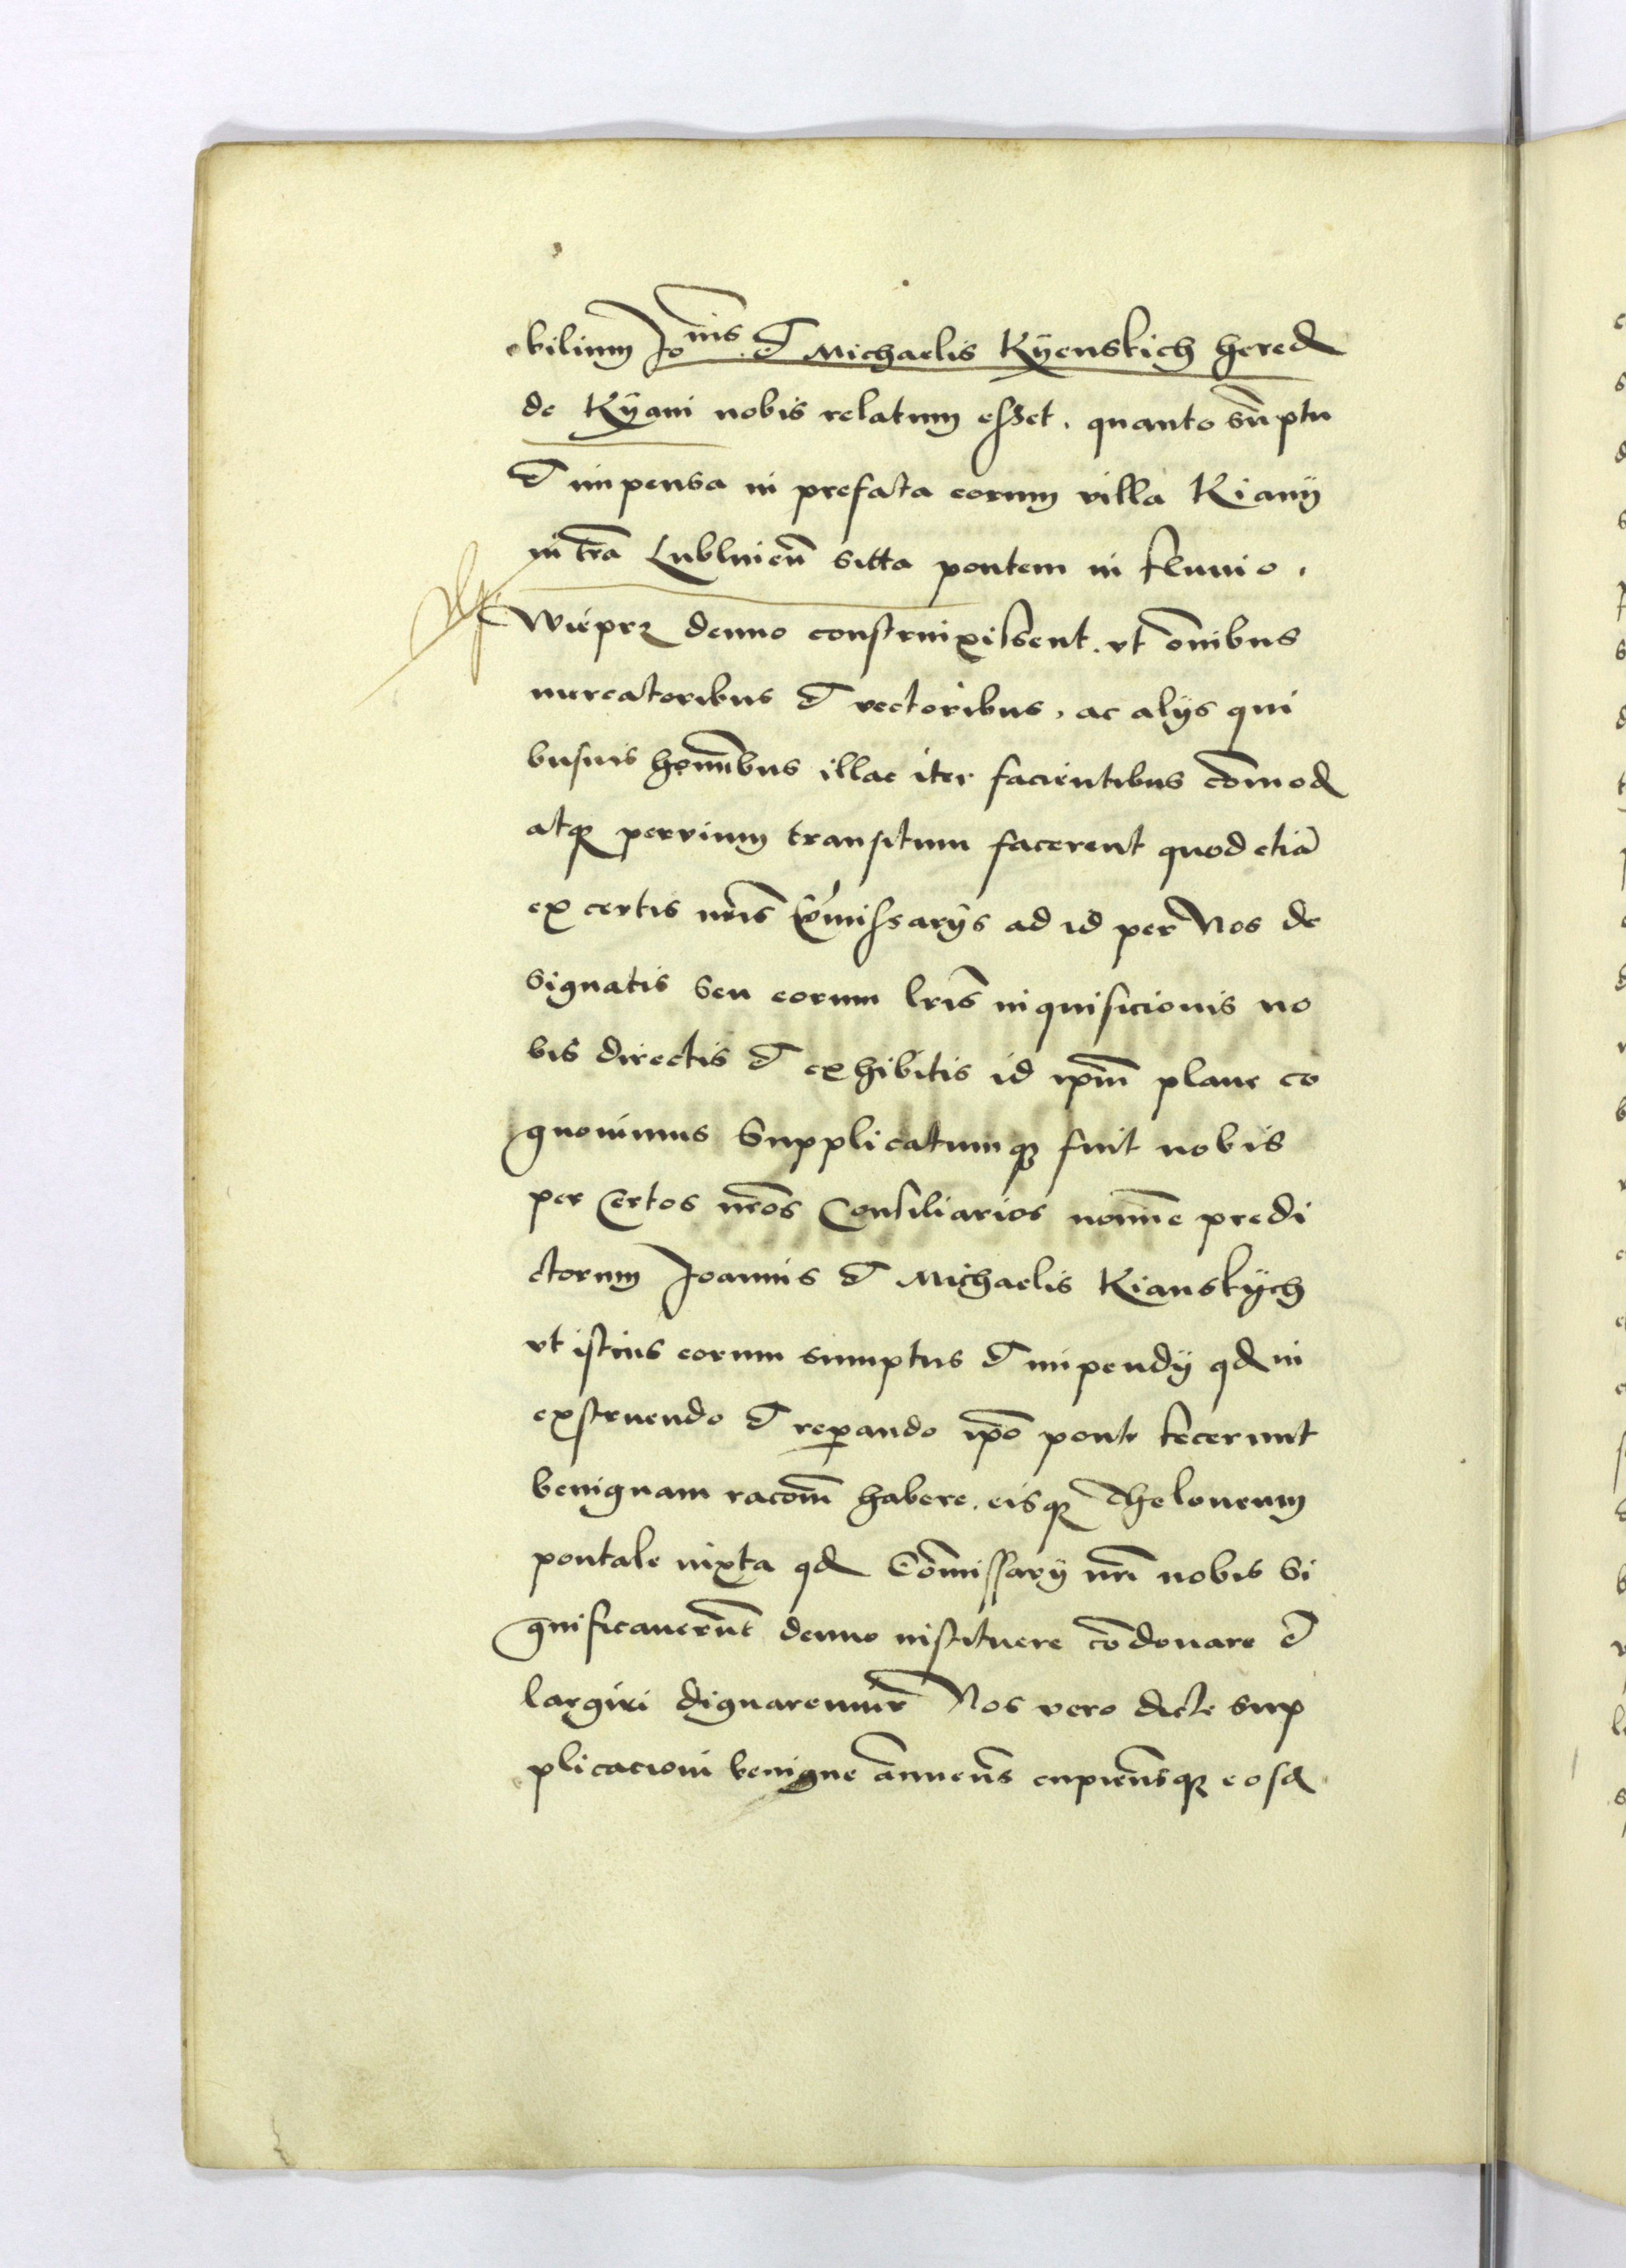 bilium Jo<sup>nis</sup> et Michaelis Kyenskich hered
de Kyani nobis relatum esset. quanto sūptu
et impensa in prefata eorum villa Kiany
in tr̄a Lublinien̄ sitta pontem in fluuio.
Wieprz denuo construixissent. vt om̄ibus
mercatoribus et vectoribus, ac alÿs qui
busuis homībus illac iter facientibus cōmod
atqꝫ pervium transitum facerent quod etiā
ex certis nr̄is Cōmissarÿs ad id per Nos de
signatis seu eorum lr̄is inquisicionis no
bis directis et exhibitis id ip̄m plane co
gnouimus Supplicatumqꝫ fuit nobis
per Certos nr̄os Consiliarios noīe predi
ctorum Joannis et Michaelis Kianskych
vt istius eorum sumptus et impendÿ qd in
exstruendo et reꝑando ip̄o ponte fecerunt
benignam racōm̄ habere. eisqꝫ Theloneum
pontale iuxta qd Cōmissarÿ nr̄i nobis si
gnificauerūt denuo instituere cōdonare et
largiri dignaremur Nos vero dicte sup
plicacioni benigne annuen̄s cupien̄sqꝫ eosd